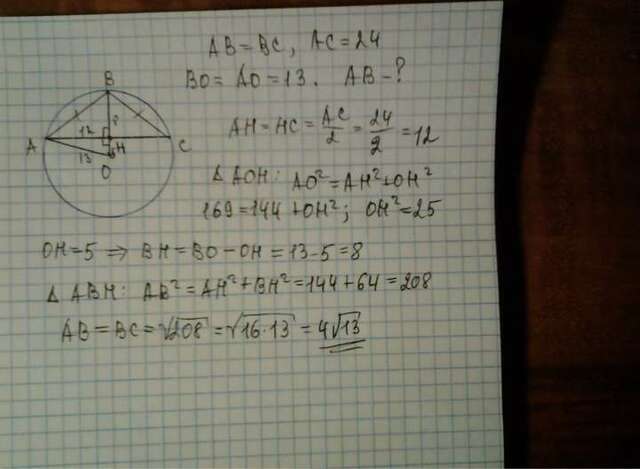 AB = BC, AC = 24
BO = AO = 13. AB - ?
B
A
12
8
H
C
13
O
AH = HC = AC/2 = 24/2 = 12
Δ AOH: AO² = AH² + OH²
169 = 144 + OH²; OH² = 25
OH = 5 ⇒ BH = BO - OH = 13 - 5 = 8
Δ ABH: AB² = AH² + BH² = 144 + 64 = 208
AB = BC = √208 = √16·13 = 4√13